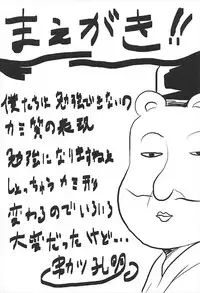 まえがき!!
僕たちは勉強できないの
カミ質の表現
勉強になりますねよ
しょっちゅうカミ形
変わるのでいろいろ
大変だったけど…